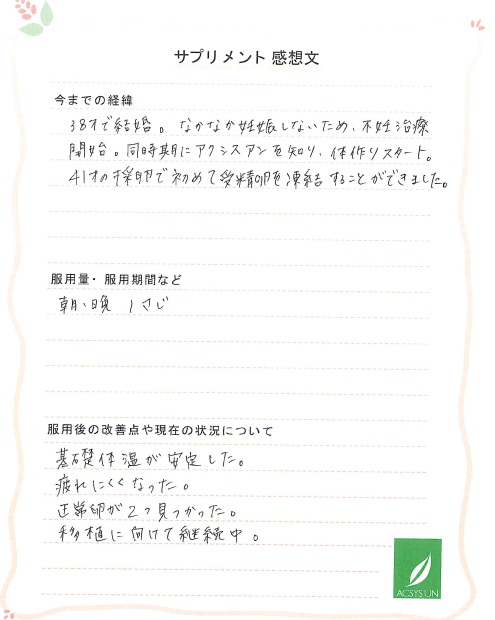 サプリメント 感想文
今までの経緯
38才で結婚。なかなか妊娠しないため、不妊治療
開始。同時期にアクシスアンを知り、体作りスタート。
41才の採卵で初めて受精卵を凍結することができました。
服用量・服用期間など
朝、晩 1さじ
服用後の改善点や現在の状況について
基礎体温が安定した。
疲れにくくなった。
正常卵が2つ見つかった。
移植に向けて継続中。
ACSYS UN